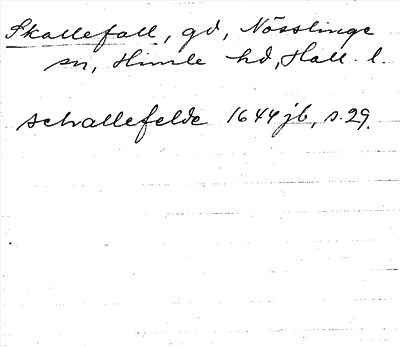 Skallefall, gd, Nösslinge
sn, Himle hd, Hall. l.
schallefelde 1644 jb, s. 29.